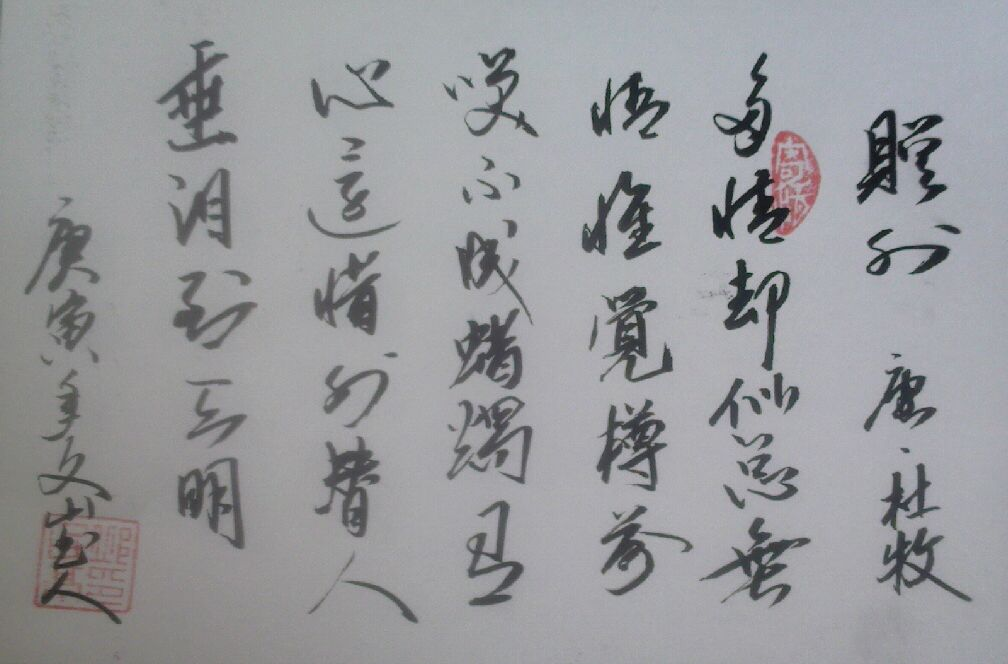 贈別 唐·杜牧
多情却似总無
情惟覺樽前
咲不成蠟燭有
心還惜別替人
垂泪到天明
庚寅年文山书人